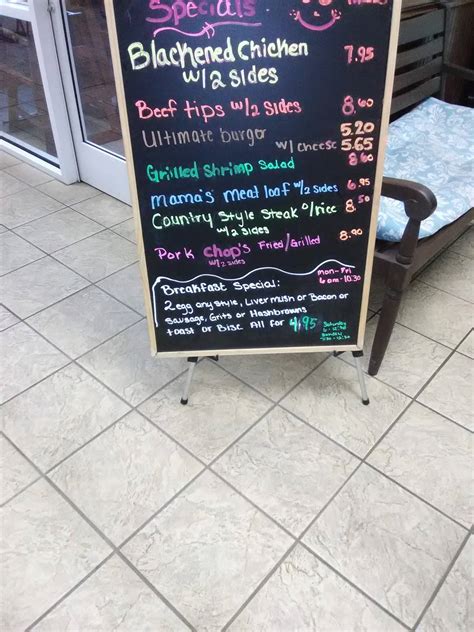 Specials
Blackened Chicken 7.95
w/2 sides
Beef tips w/2 sides 8.60
Ultimate burger 5.20
w/ cheese 5.65
Grilled Shrimp Salad 8.60
mama's meat loaf w/2 sides 6.95
Country Style Steak o/rice 8.50
w/2 sides
Pork Chop's Fried/Grilled 8.90
w/2 sides
Breakfast Special: mon-Fri
6am-10:30
2 egg any style, Liver mush or Bacon or
Sausage, Grits or Hashbrowns
toast or Bisc All for 4.95 Saturday